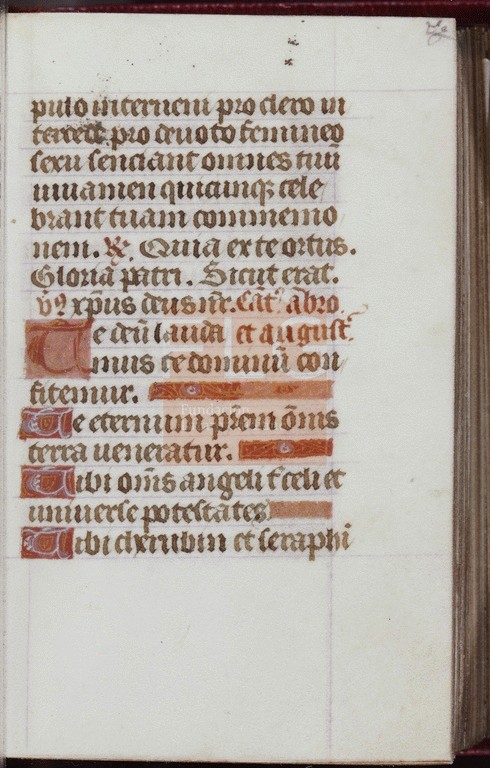 pulo interueni pro clero in
tercede pro deuoto femineo
sexu senciant omnes tuū
iuuamen quicunqꝫ cele
brant tuam commemo
nem. ℟. Quia ex te ortus.
Gloria patri. Sicut erat.
v̾9 xp̄us deus nr̄. Cāt' abro.
Te deū lauda et august'.
mus te dominū con
fitemur.
Te eternum pr̄em om̄s
terra ueneratur.
Tibi om̄s angeli t' celi et
uniuerse potestates
Tibi cherubin et seraphī